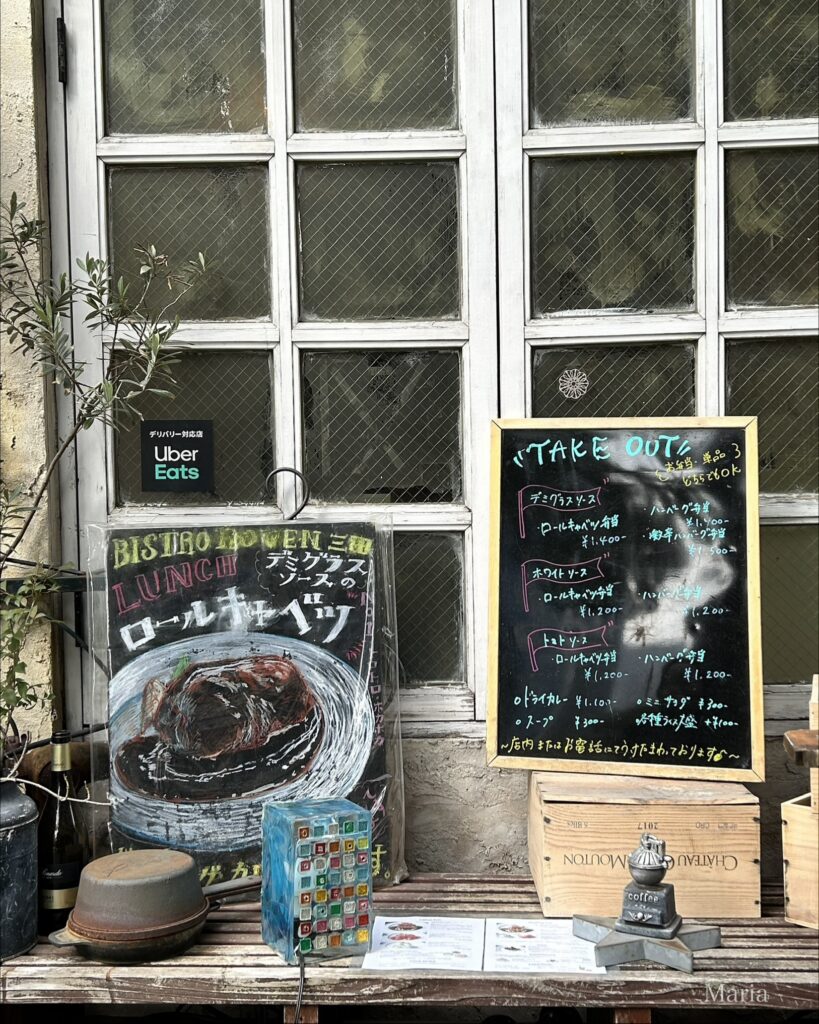 デリバリー対応店
Uber
Eats
BISTRO ROVEN 三田
LUNCH
デミグラス
ソースの
ロールキャベツ
"TAKE OUT"
お弁当・単品
どちらでもOK
デミグラスソース
・ロールキャベツ弁当
¥1.400-
・ハンバーグ弁当
¥1.400-
ハンバーグ弁当
¥1.500-
ホワイトソース
・ロールキャベツ弁当
¥1.200-
・ハンバーグ弁当
¥1.200-
トマトソース
・ロールキャベツ弁当
¥1.200-
・ハンバーグ弁当
¥1.200-
○ドライカレー ¥1.100-
○ミニサラダ ¥300-
○スープ ¥300-
各種ライス大盛 +¥100-
〜店内またはお電話にてうけたまわっております〜
CHÂTEAU MOUTON
2017
coffee
Maria